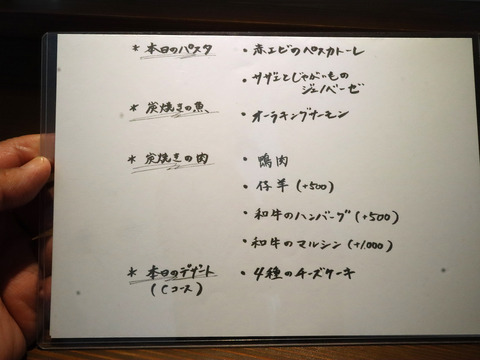 * 本日のパスタ ・赤エビのペスカトーレ
・サザエとじゃがいもの
ジェノベーゼ
* 炭焼きの魚 ・オーラキングサーモン
* 炭焼きの肉 ・鴨肉
・仔羊 (+500)
・和牛のハンバーグ (+500)
・和牛のマルシン (+1,000)
* 本日のデザート ・4種のチーズケーキ
(Cコース)